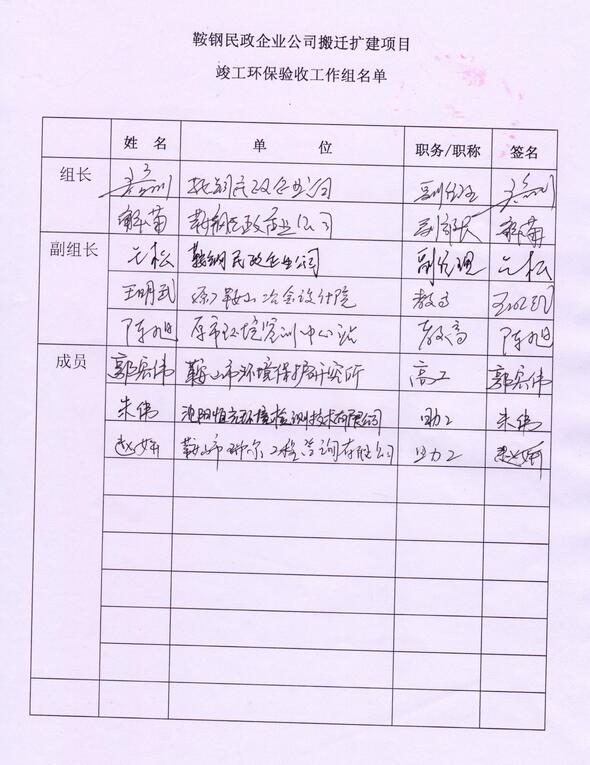 鞍钢民政企业公司搬迁扩建项目
竣工环保验收工作组名单
姓 名 单 位 职务/职称 签名
组长 鞍钢民政企业公司 副经理
解菊 鞍钢民政企业公司
副组长 元松 鞍钢民政企业公司 副经理 元松
王明武 原鞍山冶金设计院 教高 王明武
陈旭 原市环境监测中心站 教高 陈旭
成员 郭宏伟 鞍山市环境保护研究所 高工 郭宏伟
朱伟 沈阳恒光环境检测技术有限公司 助工 朱伟
赵妍 鞍山市 工程咨询有限公司 助工 赵妍